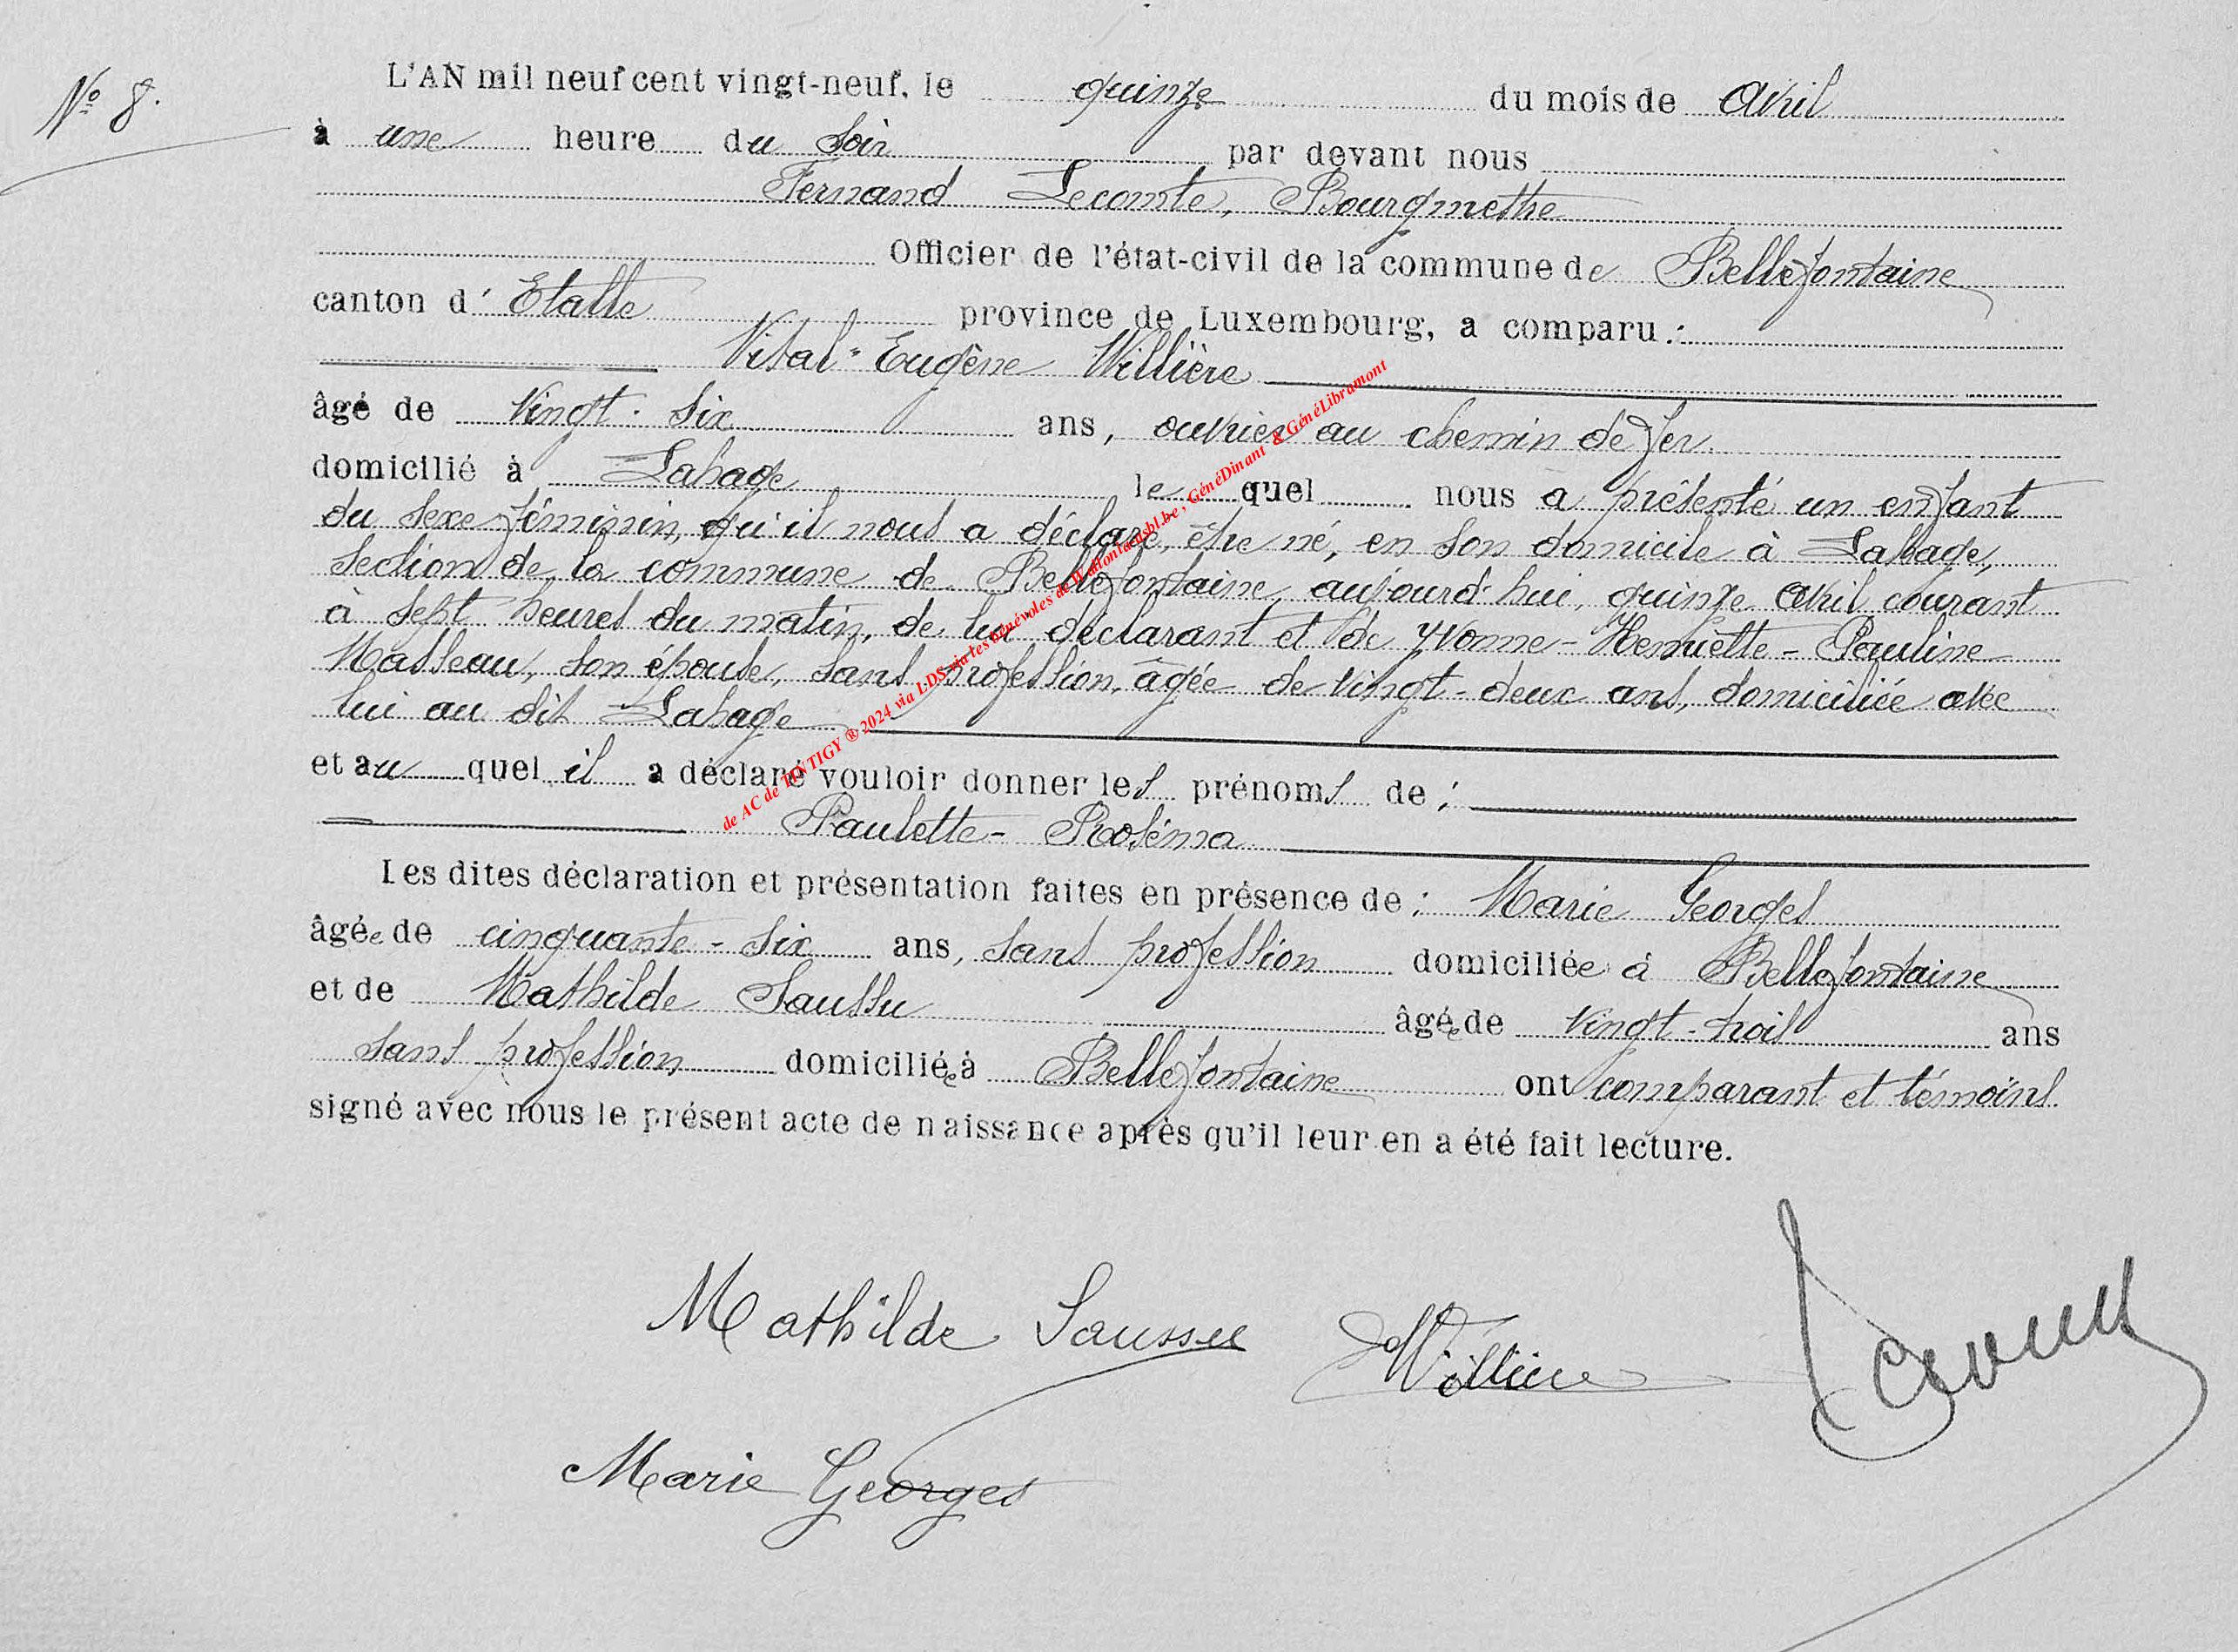 N° 8.
L'AN mil neuf cent vingt-neuf, le quinze du mois de Avril
à une heure du soir par devant nous
Fernand Lecomte, Bourgmestre
Officier de l'état-civil de la commune de Bellefontaine
canton d'Etalle province de Luxembourg, a comparu :
Vital-Eugène Willière
âgé de vingt-six ans, ouvrier au chemin de fer.
domicilié à Lahage le quel nous a présenté un enfant
du sexe féminin, qu'il nous a déclaré, être né, en son domicile à Lahage,
section de la commune de Bellefontaine, aujourd'hui, quinze Avril courant
à sept heures du matin, de lui déclarant et de Yvonne-Henriette-Pauline
Masseau, son épouse, sans profession, âgée de vingt-deux ans, domiciliée avec
lui au dit Lahage
et au quel il a déclaré vouloir donner les prénoms de :
Paulette-Roséma
Les dites déclaration et présentation faites en présence de : Marie Georges
âgée de cinquante-six ans, sans profession domiciliée à Bellefontaine
et de Mathilde Saussu âgée de vingt-trois ans
sans profession domiciliée à Bellefontaine ont comparant et témoins
signé avec nous le présent acte de naissance après qu'il leur en a été fait lecture.
Mathilde Saussu Willière
Marie Georges
de AC de TINTIGY ® 2024 via LDS via les bénévoles de Wallonia asbl.be, GénéDinant & GénéLibramont